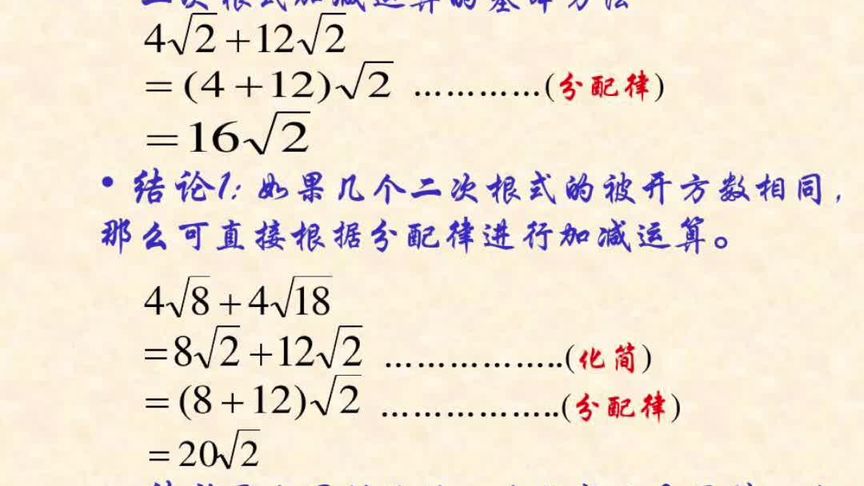 二次根式加减运算的基本方法
4√2+12√2
=(4+12)√2 …………(分配律)
=16√2
• 结论1: 如果几个二次根式的被开方数相同,
那么可直接根据分配律进行加减运算。
4√8+4√18
=8√2+12√2 ……………..(化简)
=(8+12)√2 ……………..(分配律)
=20√2